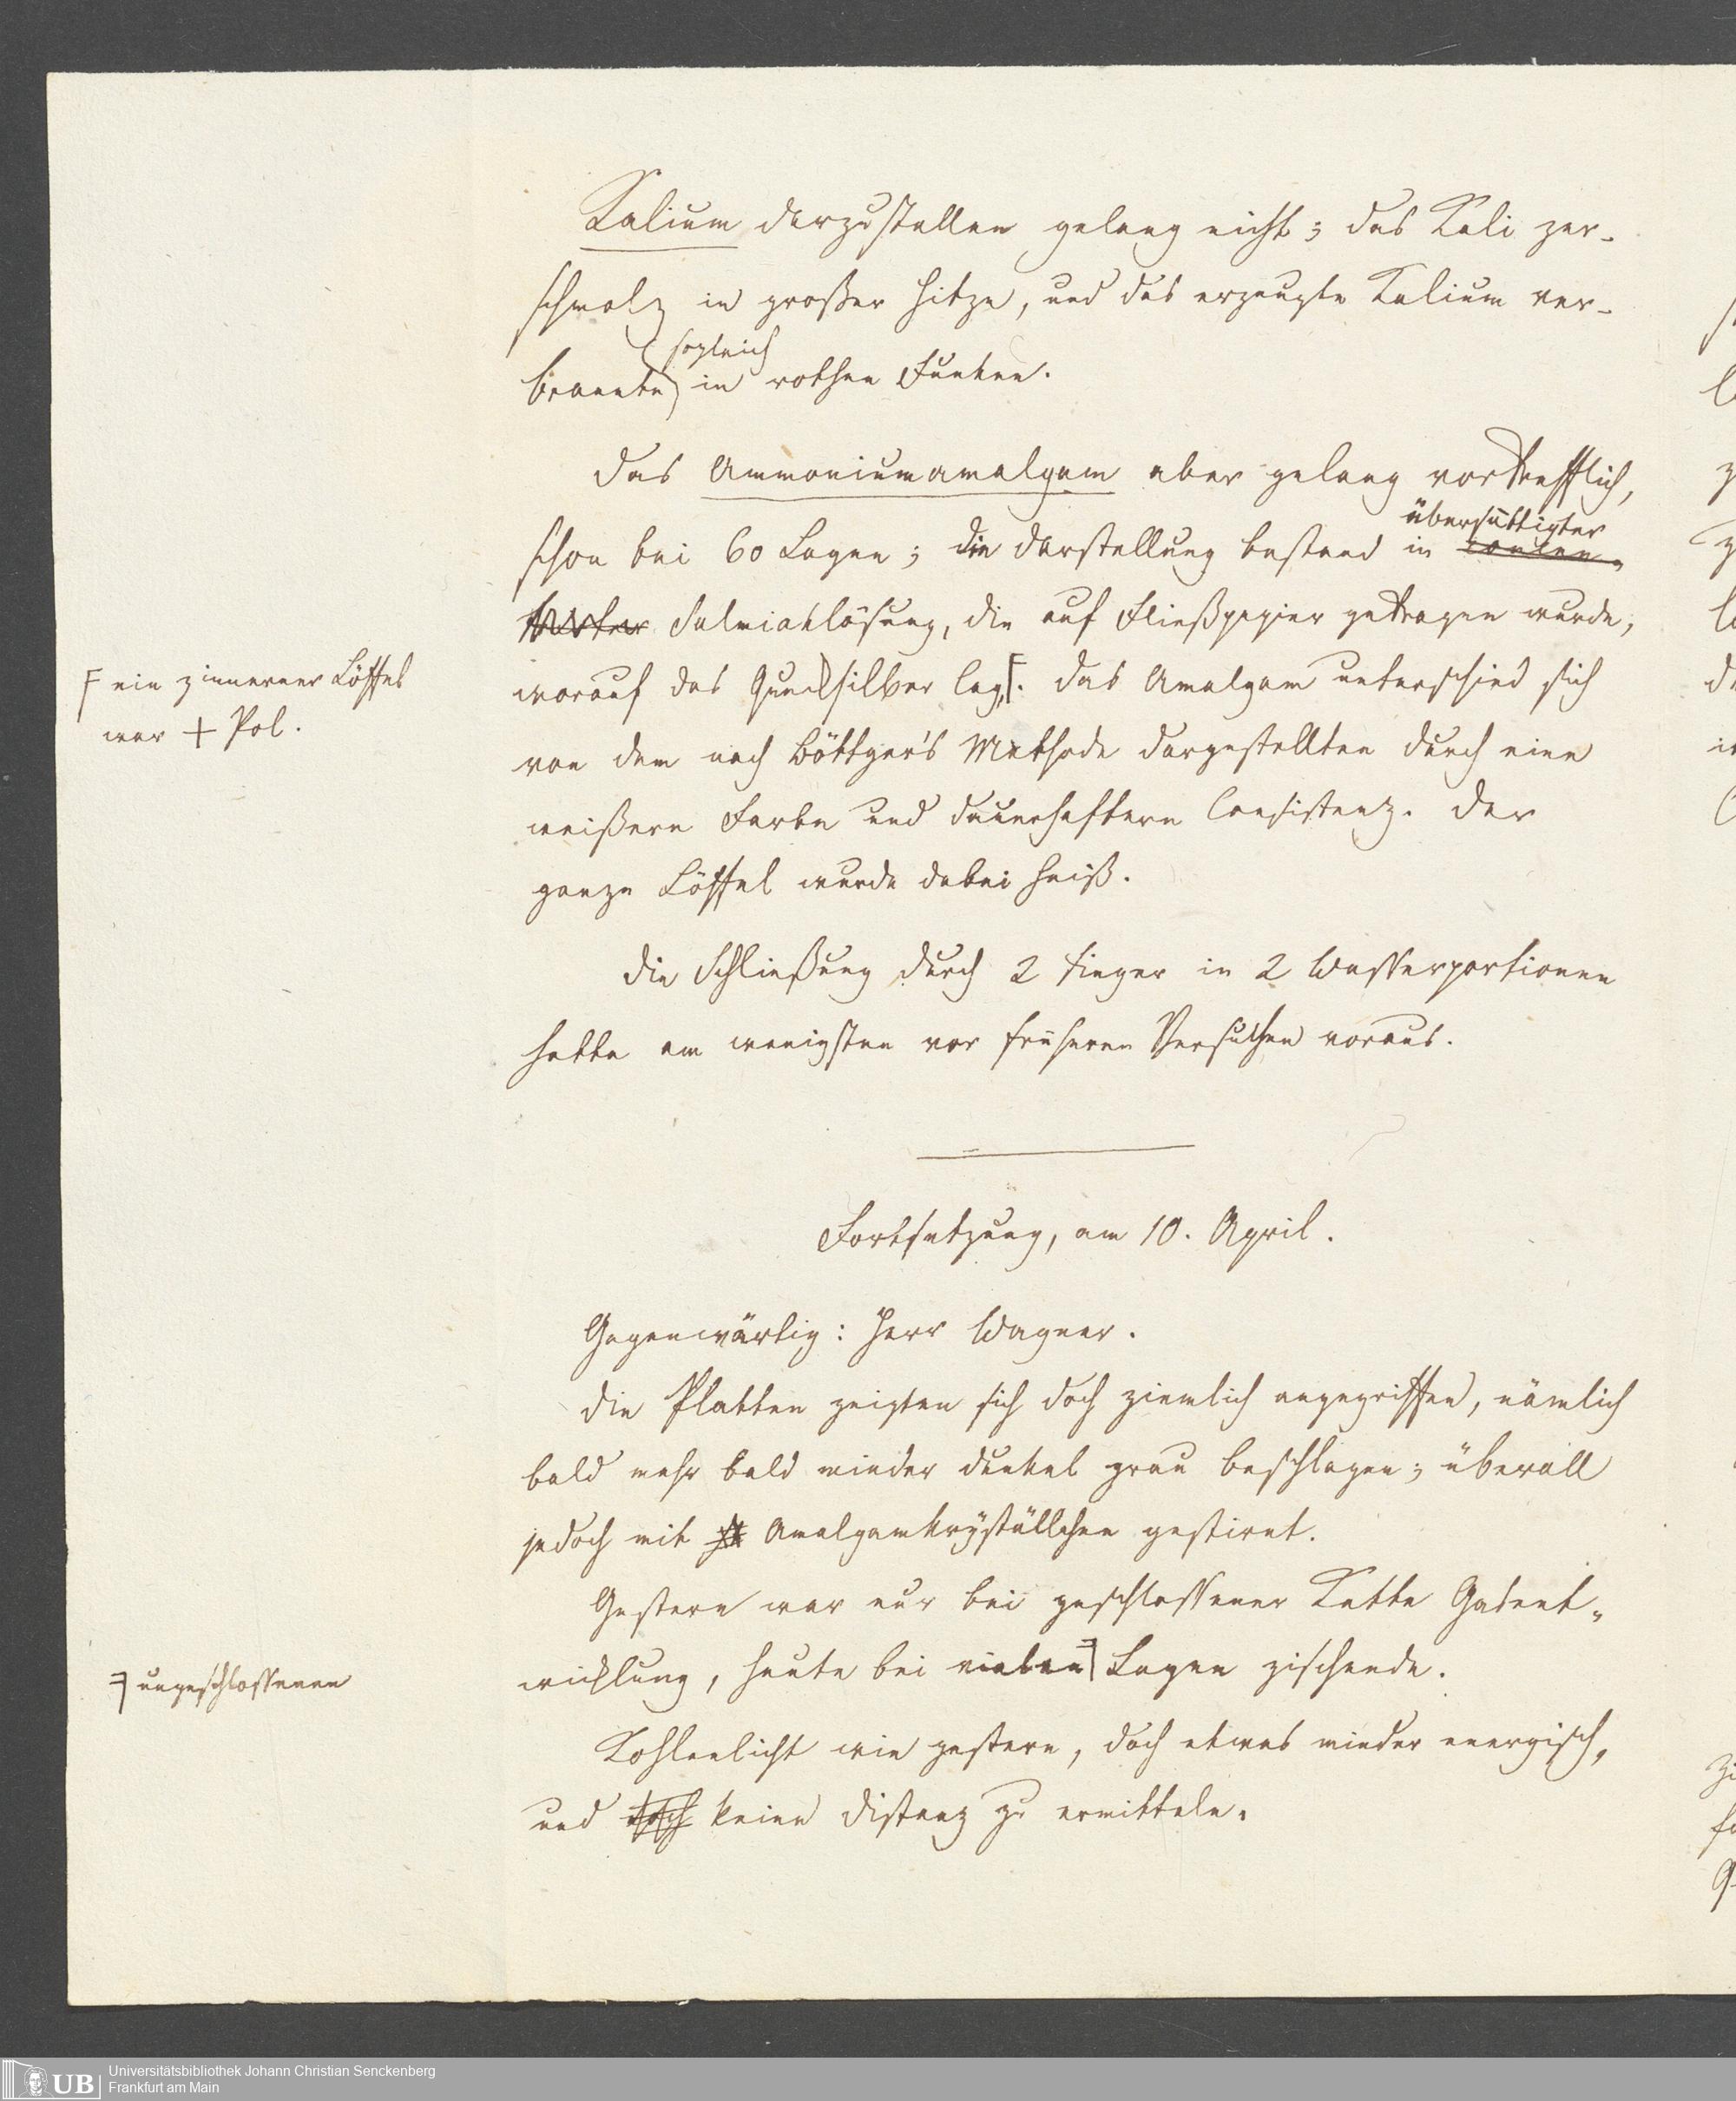 Kalium darzustellen gelang nicht; das Kali zer-
schmolz in großer Hitze, und das erzeugte Kalium ver-
sogleich
brannte in rothen Funken.
Das Ammoniumamalgam aber gelang vortrefflich,
übersättigter
schon bei 60 Lagen; die Darstellung bestand in concen-
trirter Salmiaklösung, die auf Fließpapier getragen wurde,
worauf das Quecksilber lag,. Das Amalgam unterschied sich
ein zinnerner Löffel
war + Pol.
von dem nach Böttger's Methode dargestellten durch eine
weißere Farbe und dauerhaftere Consistenz. Der
ganze Löffel wurde dabei heiß.
Die Schließung durch 2 Finger in 2 Wasserportionen
hatte am wenigsten vor früheren Versuchen voraus.
Fortsetzung, am 10. April.
Gegenwärtig: Herr Wagner.
Die Platten zeigten sich doch ziemlich angegriffen, nämlich
bald mehr bald minder dunkel grau beschlagen; überall
jedoch mit Amalgamkryställchen gestirnt.
Gestern war nur bei geschlossener Kette Gasent-
wicklung, heute bei vielen Lagen zischende.
ungeschlossenen
Kohlenlicht wie gestern, doch etwas minder energisch,
und doch keine Distanz zu ermitteln.
Universitätsbibliothek Johann Christian Senckenberg
Frankfurt am Main
UB